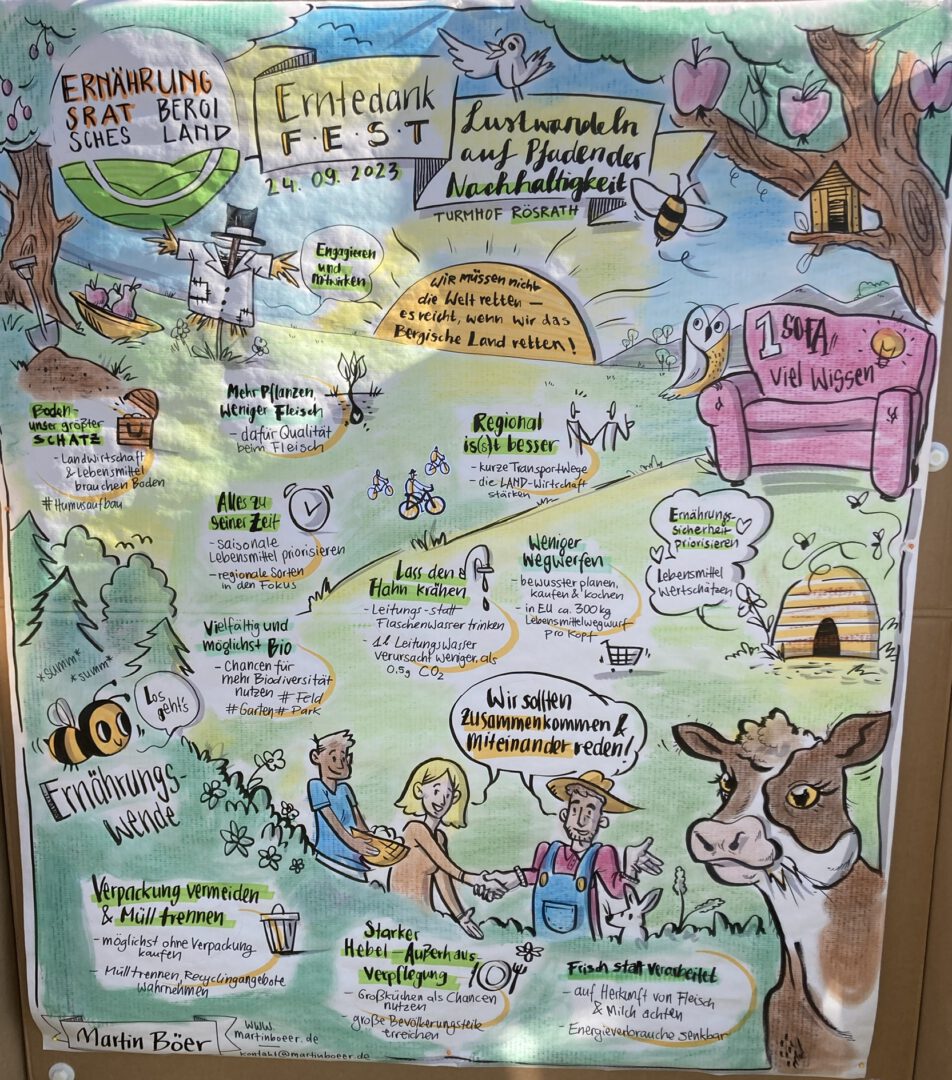 ERNÄHRUNG
SRAT BERGI
SCHES LAND
Erntedank
F·E·S·T
24. 09. 2023
Lustwandeln
auf Pfaden der
Nachhaltigkeit
TURMHOF RÖSRATH
Engagieren
und
mitwirken
Wir müssen nicht
die Welt retten –
es reicht, wenn wir das
Bergische Land retten!
1 SOFA
viel Wissen
Boden-
unser größter
SCHATZ
- Landwirtschaft
& Lebensmittel
brauchen Boden
#Humusaufbau
Mehr Pflanzen,
weniger Fleisch
- dafür Qualität
beim Fleisch
Regional
is(s)t besser
- kurze Transportwege
- die LAND-Wirtschaft
stärken
Alles zu
seiner Zeit
- saisonale
Lebensmittel priorisieren
- regionale Sorten
in den Fokus
Lass den
Hahn krähen
- Leitungs- statt
Flaschenwasser trinken
- 1L Leitungswasser
verursacht weniger als
0,5g CO2
Weniger
wegwerfen
- bewusster planen,
kaufen & kochen
- in EU ca. 300 kg
Lebensmittelwegwurf
pro Kopf
Ernährungs-
sicherheit
priorisieren
Lebensmittel
wertschätzen
Vielfältig und
möglichst Bio
- Chancen für
mehr Biodiversität
nutzen # Feld
# Garten # Park
*summ*
*summ*
Los
geht's
Ernährungs-
wende
Wir sollten
zusammenkommen &
miteinander reden!
Verpackung vermeiden
& Müll trennen
- möglichst ohne Verpackung
kaufen
- Müll trennen, Recyclingangebote
wahrnehmen
Starker
Hebel – Außerhaus-
verpflegung
- Großküchen als Chancen
nutzen
- große Bevölkerungsteile
erreichen
Frisch statt verarbeitet
- auf Herkunft von Fleisch
& Milch achten
- Energieverbrauche senkbar
Martin Böer
www.
martinboeer.de
kontakt@martinboeer.de